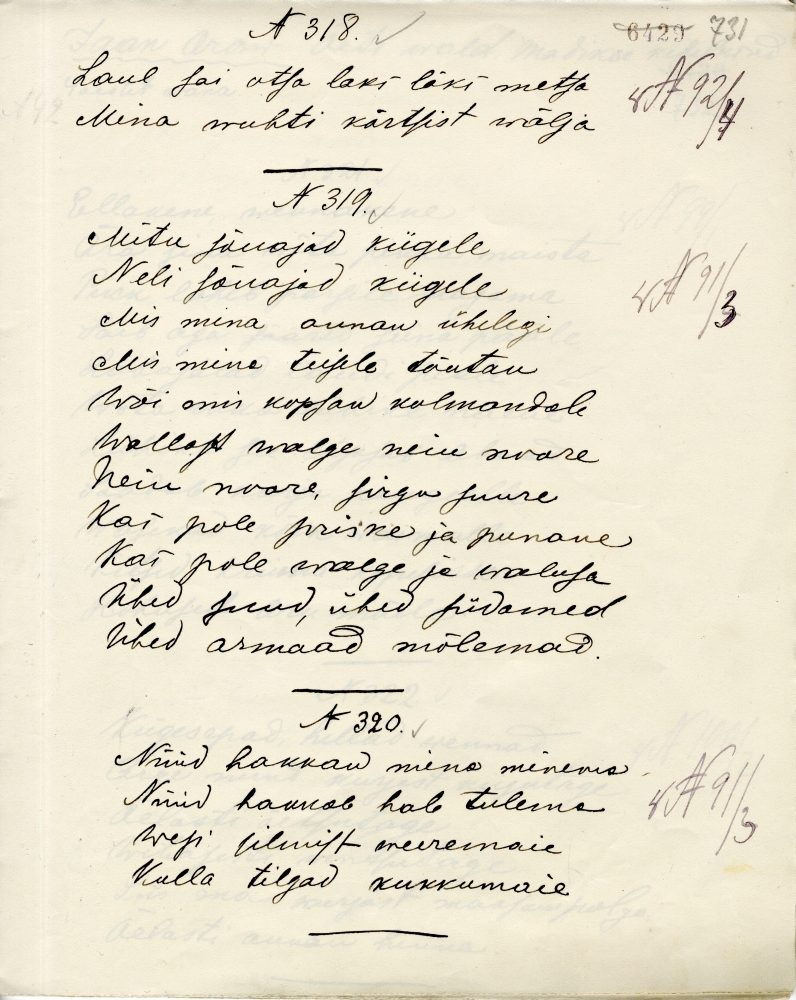 № 318.
6429 731
Laul sai otsa laks läks metsa
Mina wuhti kõrtsist wälja
№ 92/4
№ 319.
Mitu sõuajad kiigele
Neli sõuajad kiigele
№ 91/3
Mis mina annan ühelegi
Mis mina teisele tõutan
Wõi mis kopsan kolmandale
Wallast walge neiu noore
Neiu noore, sirgu suure
Kas pole priske ja punane
Kas pole walge ja walusa
Ühed suud, ühed südamed
Ühed armaad mõlemad.
№ 320.
Nüüd hakkan mina minema
Nüüd hakkab hale tulema
№ 91/3
Wesi silmist weeremaie
Kulla tilgad kukkumaie